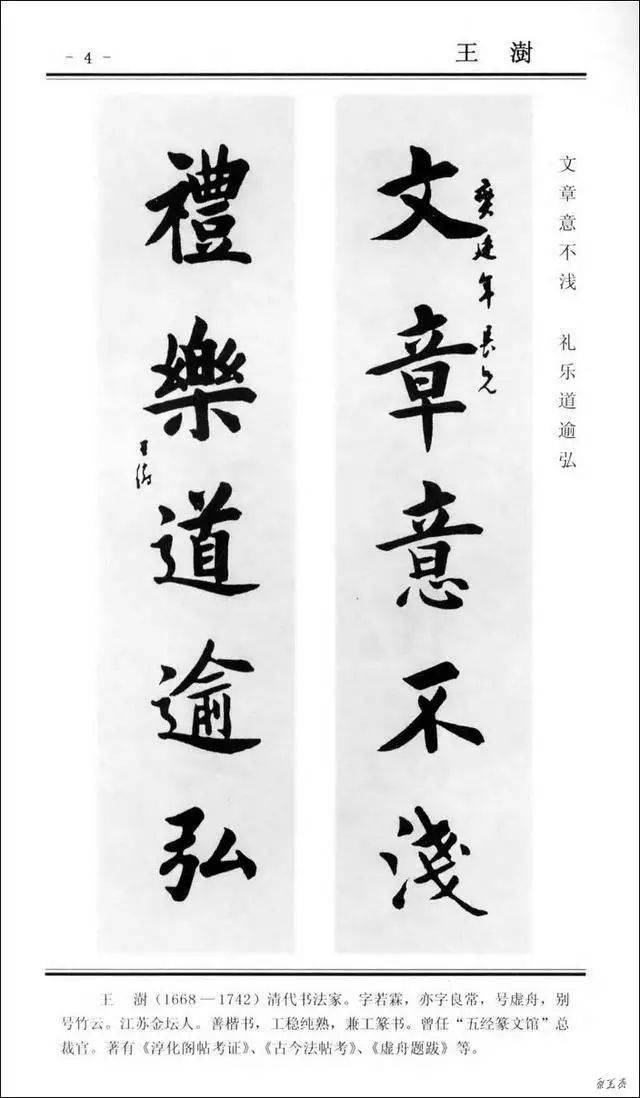 - 4 -
王 澍
文章意不浅 礼乐道逾弘
文章意不淺
年長兄
禮樂道逾弘
王澍
王 澍(1668—1742)清代书法家。字若霖，亦字良常，号虚舟，别
号竹云。江苏金坛人。善楷书，工稳纯熟，兼工篆书。曾任“五经篆文馆”总
裁官。著有《淳化阁帖考证》、《古今法帖考》、《虚舟题跋》等。